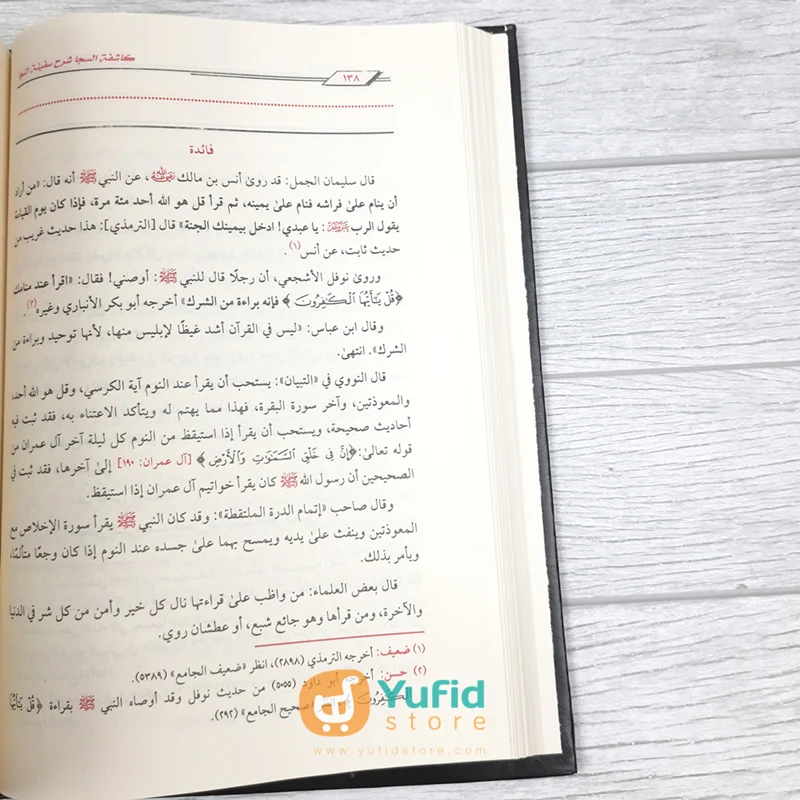 كاشفة السجا شرح سفينة النجا
١٣٨
فائدة
قال سليمان الجمل: قد روىٰ أنس بن مالك رضي الله عنه، عن النبي ﷺ أنه قال: «من أراد
أن ينام علىٰ فراشه فنام علىٰ يمينه، ثم قرأ قل هو الله أحد مئة مرة، فإذا كان يوم القيامة
يقول الرب: يا عبدي! ادخل بيمينك الجنة» قال [الترمذي]: هذا حديث غريب من
حديث ثابت، عن أنس(١).
وروىٰ نوفل الأشجعي، أن رجلًا قال للنبي ﷺ: أوصني! فقال: «اقرأ عند منامك
﴿قُلْ يَٰٓأَيُّهَا ٱلْكَٰفِرُونَ﴾ فإنه براءة من الشرك» أخرجه أبو بكر الأنباري وغيره(٢).
وقال ابن عباس: «ليس في القرآن أشد غيظًا لإبليس منها، لأنها توحيد وبراءة من
الشرك». انتهىٰ.
قال النووي في «التبيان»: يستحب أن يقرأ عند النوم آية الكرسي، وقل هو الله أحد،
والمعوذتين، وآخر سورة البقرة، فهذا مما يهتم له ويتأكد الاعتناء به، فقد ثبت فيه
أحاديث صحيحة، ويستحب أن يقرأ إذا استيقظ من النوم كل ليلة آخر آل عمران من
قوله تعالىٰ: ﴿إِنَّ فِي خَلْقِ ٱلسَّمَٰوَٰتِ وَٱلْأَرْضِ﴾ [آل عمران: ١٩٠] إلىٰ آخرها، فقد ثبت في
الصحيحين أن رسول الله ﷺ كان يقرأ خواتيم آل عمران إذا استيقظ.
وقال صاحب «إتمام الدرة الملتقطة»: وقد كان النبي ﷺ يقرأ سورة الإخلاص مع
المعوذتين وينفث علىٰ يديه ويمسح بهما علىٰ جسده عند النوم إذا كان وجعًا متألمًا،
ويأمر بذلك.
قال بعض العلماء: من واظب علىٰ قراءتها نال كل خير وأمن من كل شر في الدنيا
والآخرة، ومن قرأها وهو جائع شبع، أو عطشان روي.
(١) ضعيف: أخرجه الترمذي (٢٨٩٨)، انظر «ضعيف الجامع» (٥٣٨٩).
(٢) حسن: أخرجه أبو داود (٥٠٥٥) من حديث نوفل وقد أوصاه النبي ﷺ بقراءة ﴿قُلْ يَٰٓأَيُّهَا
ٱلْكَٰفِرُونَ﴾ «صحيح الجامع» (٢٩٢).
Yufid
store
www.yufidstore.com